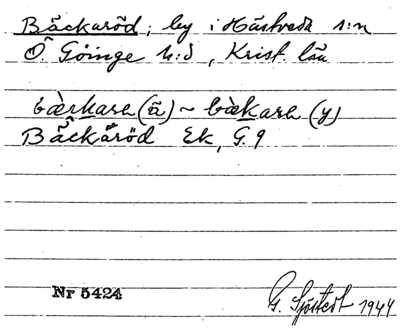 Bäckaröd; by i Hästveda s:n
Ö. Göinge h:d, Krist. län
bærkara (ä) ~ bækara (y)
Bäckåröd Ek, G. 9
Nr 5424
G. Sjöstedt 1944